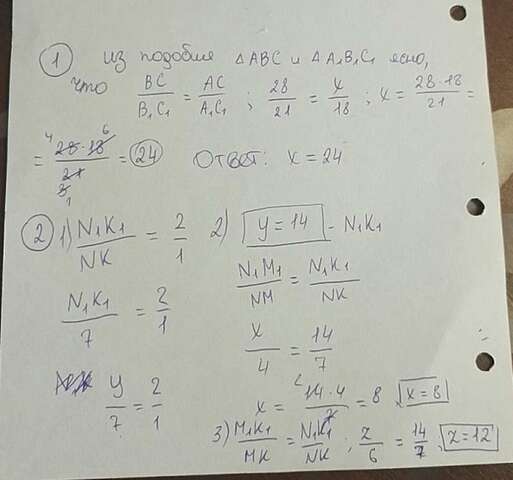 ① из подобия △ABC и △A₁B₁C₁ ясно,
что BC/B₁C₁ = AC/A₁C₁ ; 28/21 = x/18 ; x = 28·18/21 =
= 28·18/21 = 24 Ответ: x = 24
② 1) N₁K₁/NK = 2/1
N₁K₁/7 = 2/1
y/7 = 2/1
2) y = 14 - N₁K₁
N₁M₁/NM = N₁K₁/NK
x/4 = 14/7
x = 14·4/7 = 8 x = 8
3) M₁K₁/MK = N₁K₁/NK ; z/6 = 14/7 z = 12